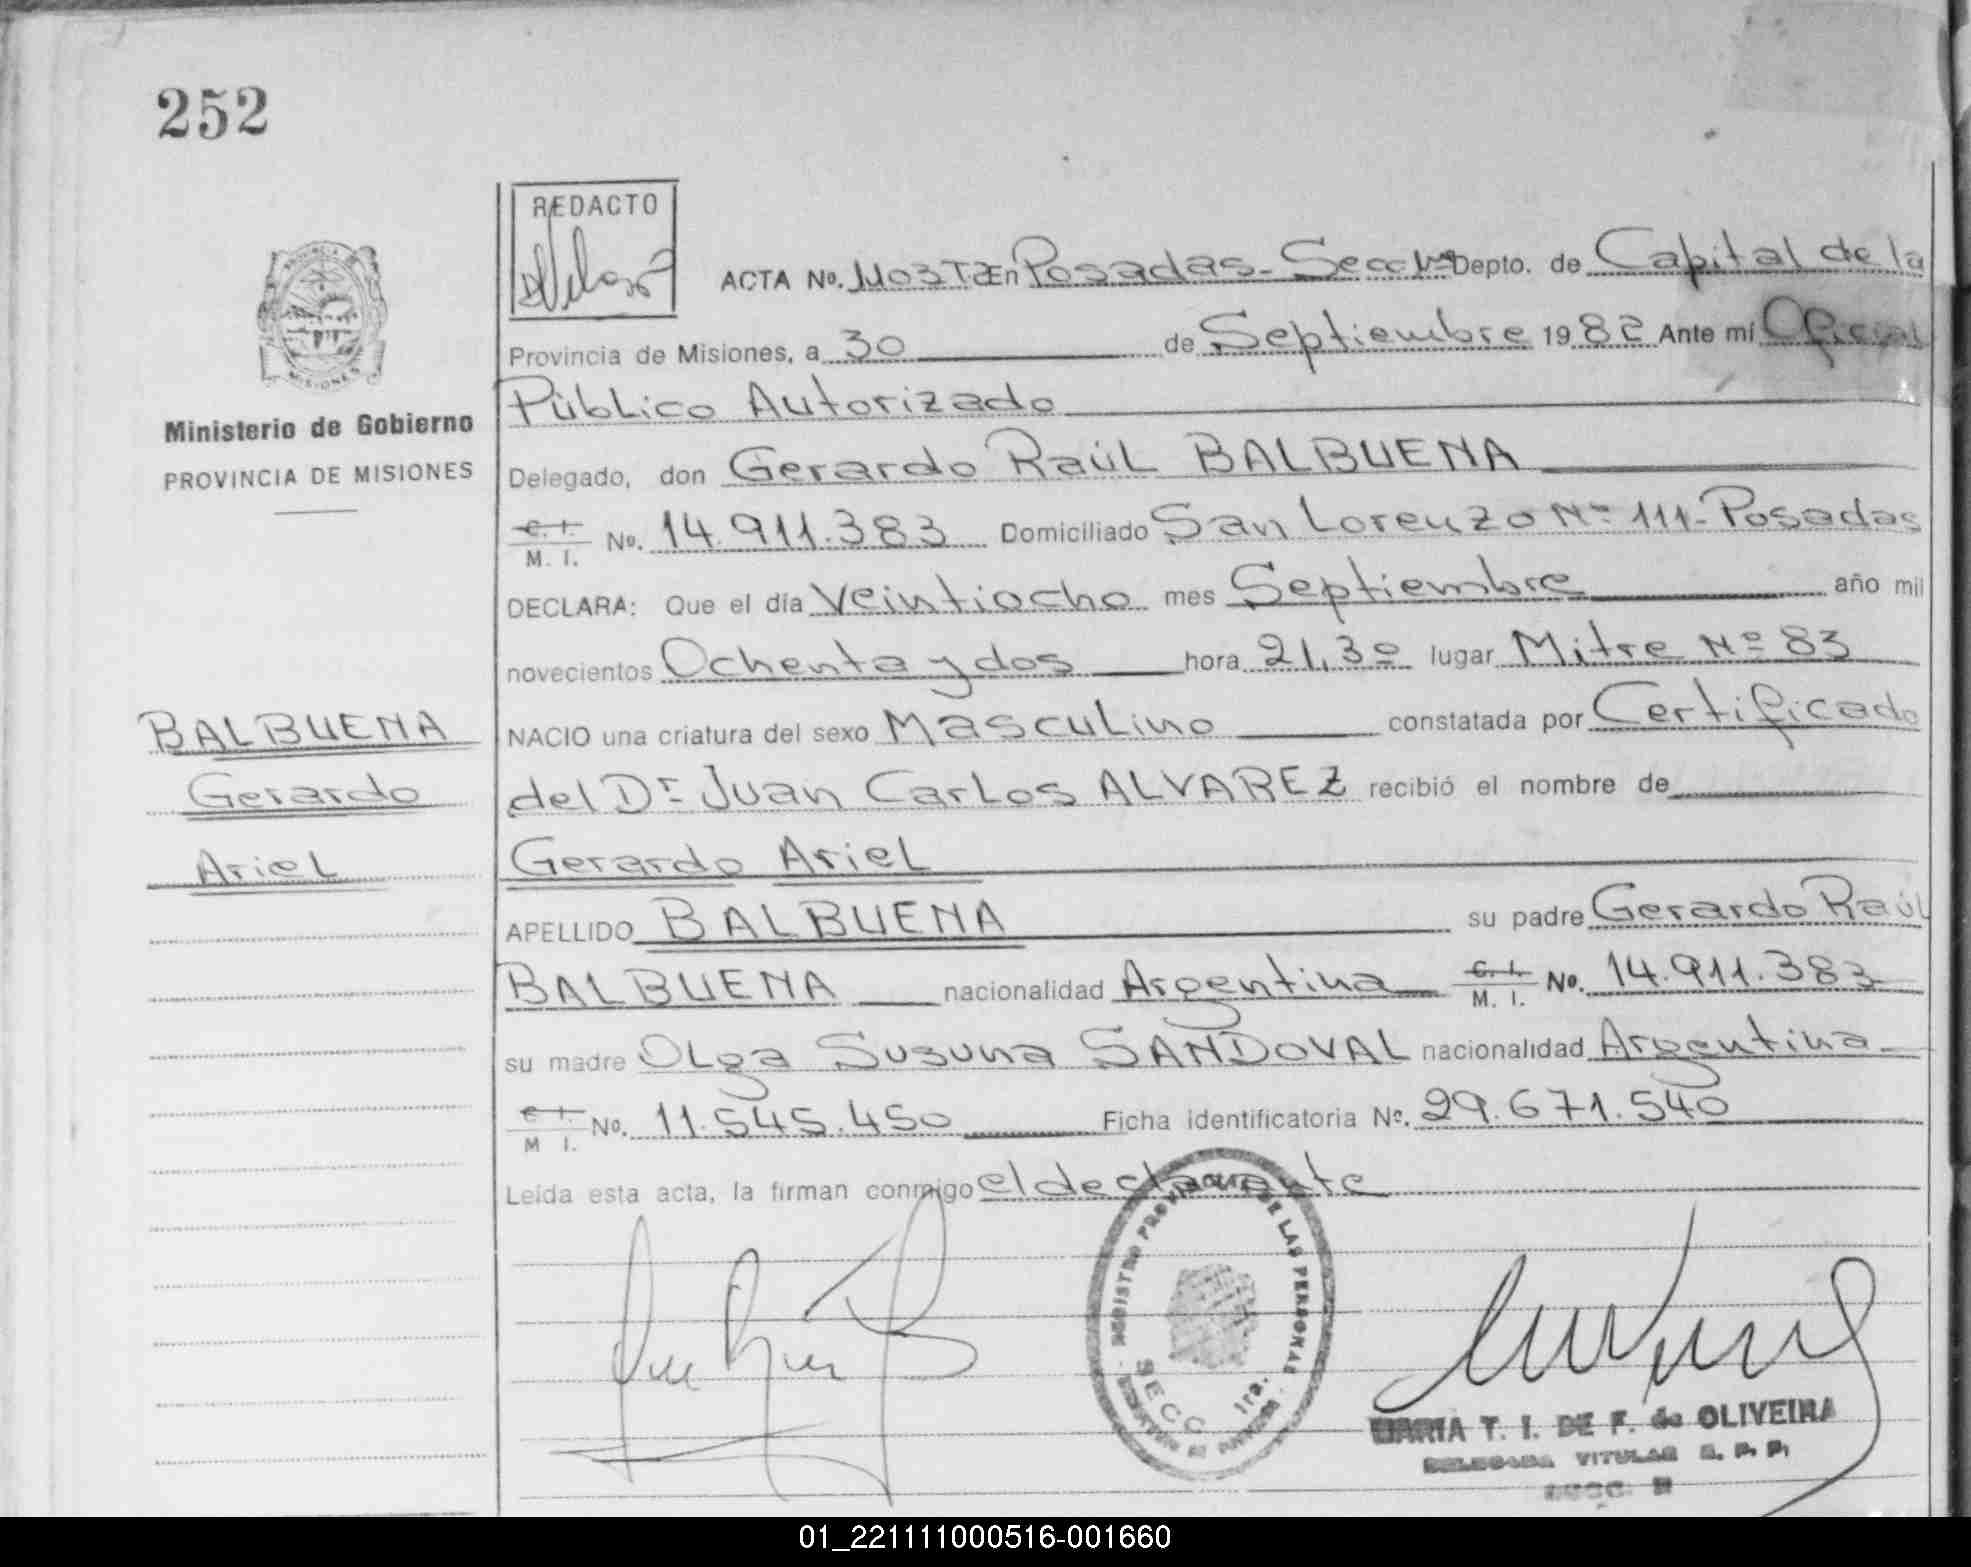 252
REDACTO
ACTA No. 1103 T.2 En Posadas - Secc 1ª Depto. de Capital de la
Provincia de Misiones, a 30 de Septiembre 1982 Ante mí Oficial
Público Autorizado
Delegado, don Gerardo Raúl BALBUENA
C. I. M. I. No. 14.911.383 Domiciliado San Lorenzo Nº 111 - Posadas
DECLARA: Que el día Veintiocho mes Septiembre año mil
novecientos Ochenta y dos hora 21,30 lugar Mitre Nº 83
NACIO una criatura del sexo Masculino constatada por Certificado
del Dr Juan Carlos ALVAREZ recibió el nombre de
Gerardo Ariel
APELLIDO BALBUENA su padre Gerardo Raúl
BALBUENA nacionalidad Argentina C. I. M. I. No. 14.911.383
su madre Olga Susuna SANDOVAL nacionalidad Argentina
C. I. M I. No. 11.545.450 Ficha identificatoria No. 29.671.540
Leída esta acta, la firman conmigo el declarante
PROVINCIA DE MISIONES
Ministerio de Gobierno
PROVINCIA DE MISIONES
BALBUENA
Gerardo
Ariel
REGISTRO PROVINCIAL DE LAS PERSONAS
SECC 1ra.
MARIA T. I. DE F. de OLIVEIRA
DELEGADA TITULAR R. P. P.
SECC.
01_221111000516-001660